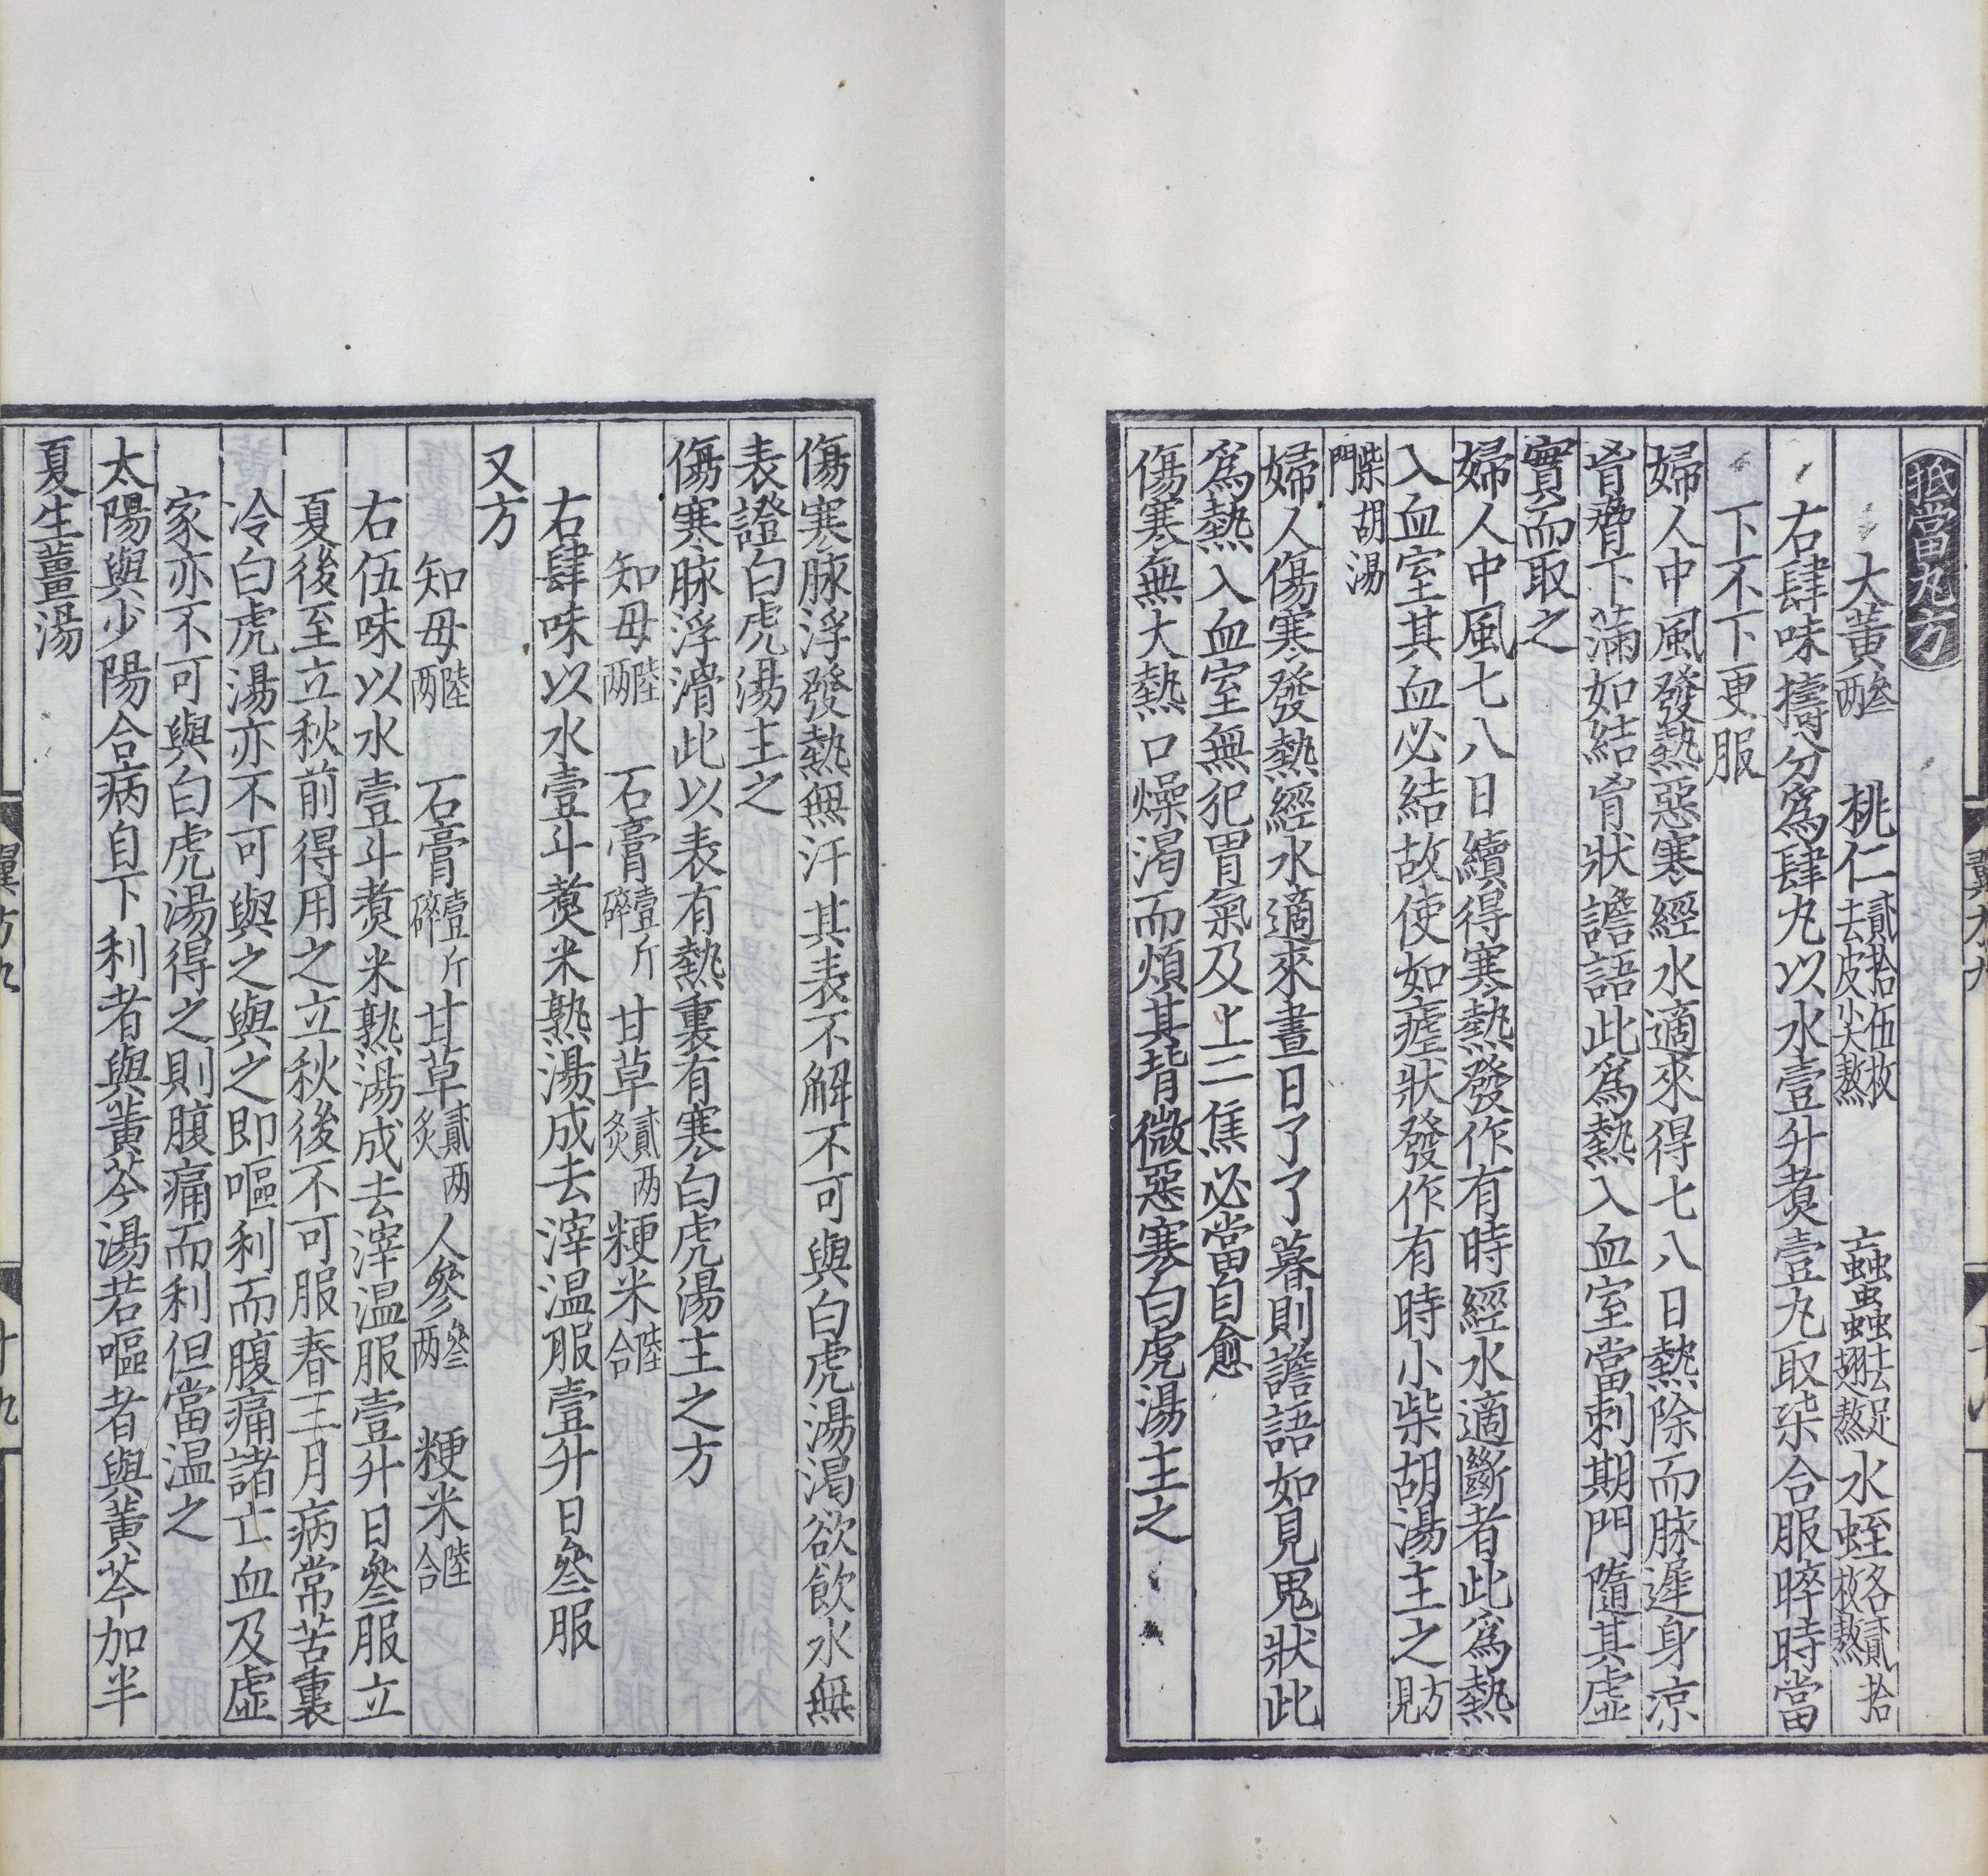 抵當丸方
大黃叄兩 桃仁貳拾伍枚去皮尖熬 蝱蟲去足翅熬 水蛭各貳拾枚熬
右肆味擣分爲肆丸以水壹升煑壹丸取柒合服晬時當
下不下更服
婦人中風發熱惡寒經水適來得七八日熱除而脉遲身涼
胷脅下滿如結胷狀譫語此爲熱入血室當刺期門隨其虛
實而取之
婦人中風七八日續得寒熱發作有時經水適斷者此爲熱
入血室其血必結故使如瘧狀發作有時小柴胡湯主之方見
柴胡湯門
婦人傷寒發熱經水適來晝日了了暮則譫語如見鬼狀此
爲熱入血室無犯胃氣及上二焦必當自愈
傷寒無大熱口燥渴而煩其背微惡寒白虎湯主之
傷寒脉浮發熱無汗其表不解不可與白虎湯渴欲飲水無
表證白虎湯主之
傷寒脉浮滑此以表有熱裏有寒白虎湯主之方
知母陸兩 石膏壹斤碎 甘草貳两炙 粳米陸合
右肆味以水壹斗煑米熟湯成去滓温服壹升日叄服
又方
知母陸兩 石膏壹斤碎 甘草貳两炙 人參叄兩 粳米陸合
右伍味以水壹斗煑米熟湯成去滓温服壹升日叄服立
夏後至立秋前得用之立秋後不可服春三月病常苦裏
冷白虎湯亦不可與之與之即嘔利而腹痛諸亡血及虛
家亦不可與白虎湯得之則腹痛而利但當温之
太陽與少陽合病自下利者與黃芩湯若嘔者與黃芩加半
夏生薑湯
翼方九
十九